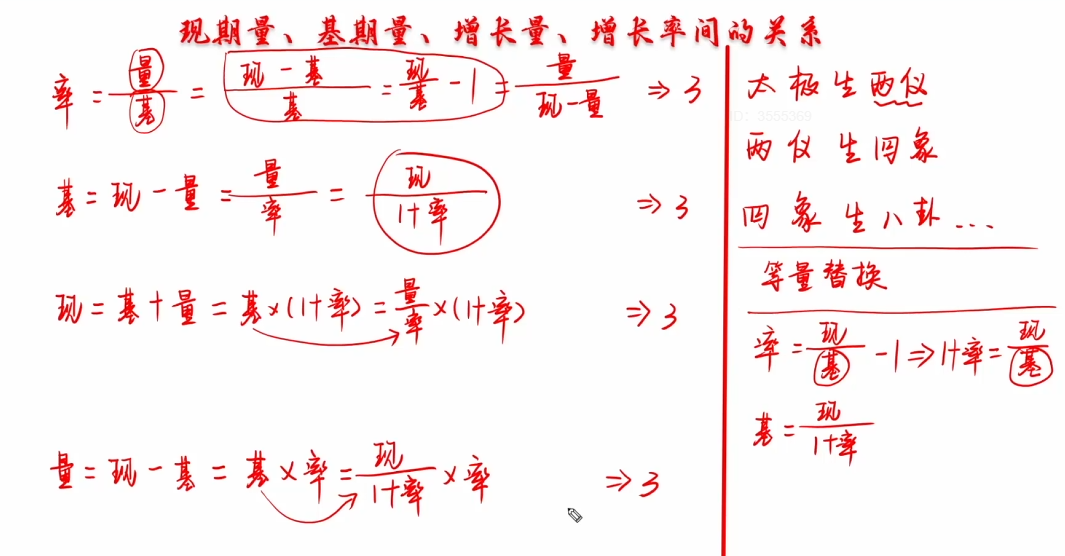 现期量、基期量、增长量、增长率间的关系
率 = 量/基 = (现-基)/基 = 现/基 - 1 = 量/(现-量) ⇒ 3
基 = 现 - 量 = 量/率 = 现/(1+率) ⇒ 3
现 = 基 + 量 = 基×(1+率) = 量/率×(1+率) ⇒ 3
量 = 现 - 基 = 基×率 = 现/(1+率)×率 ⇒ 3
太极生两仪
ID: 3555369
两仪生四象
四象生八卦...
等量替换
率 = 现/基 - 1 ⇒ 1+率 = 现/基
基 = 现/(1+率)